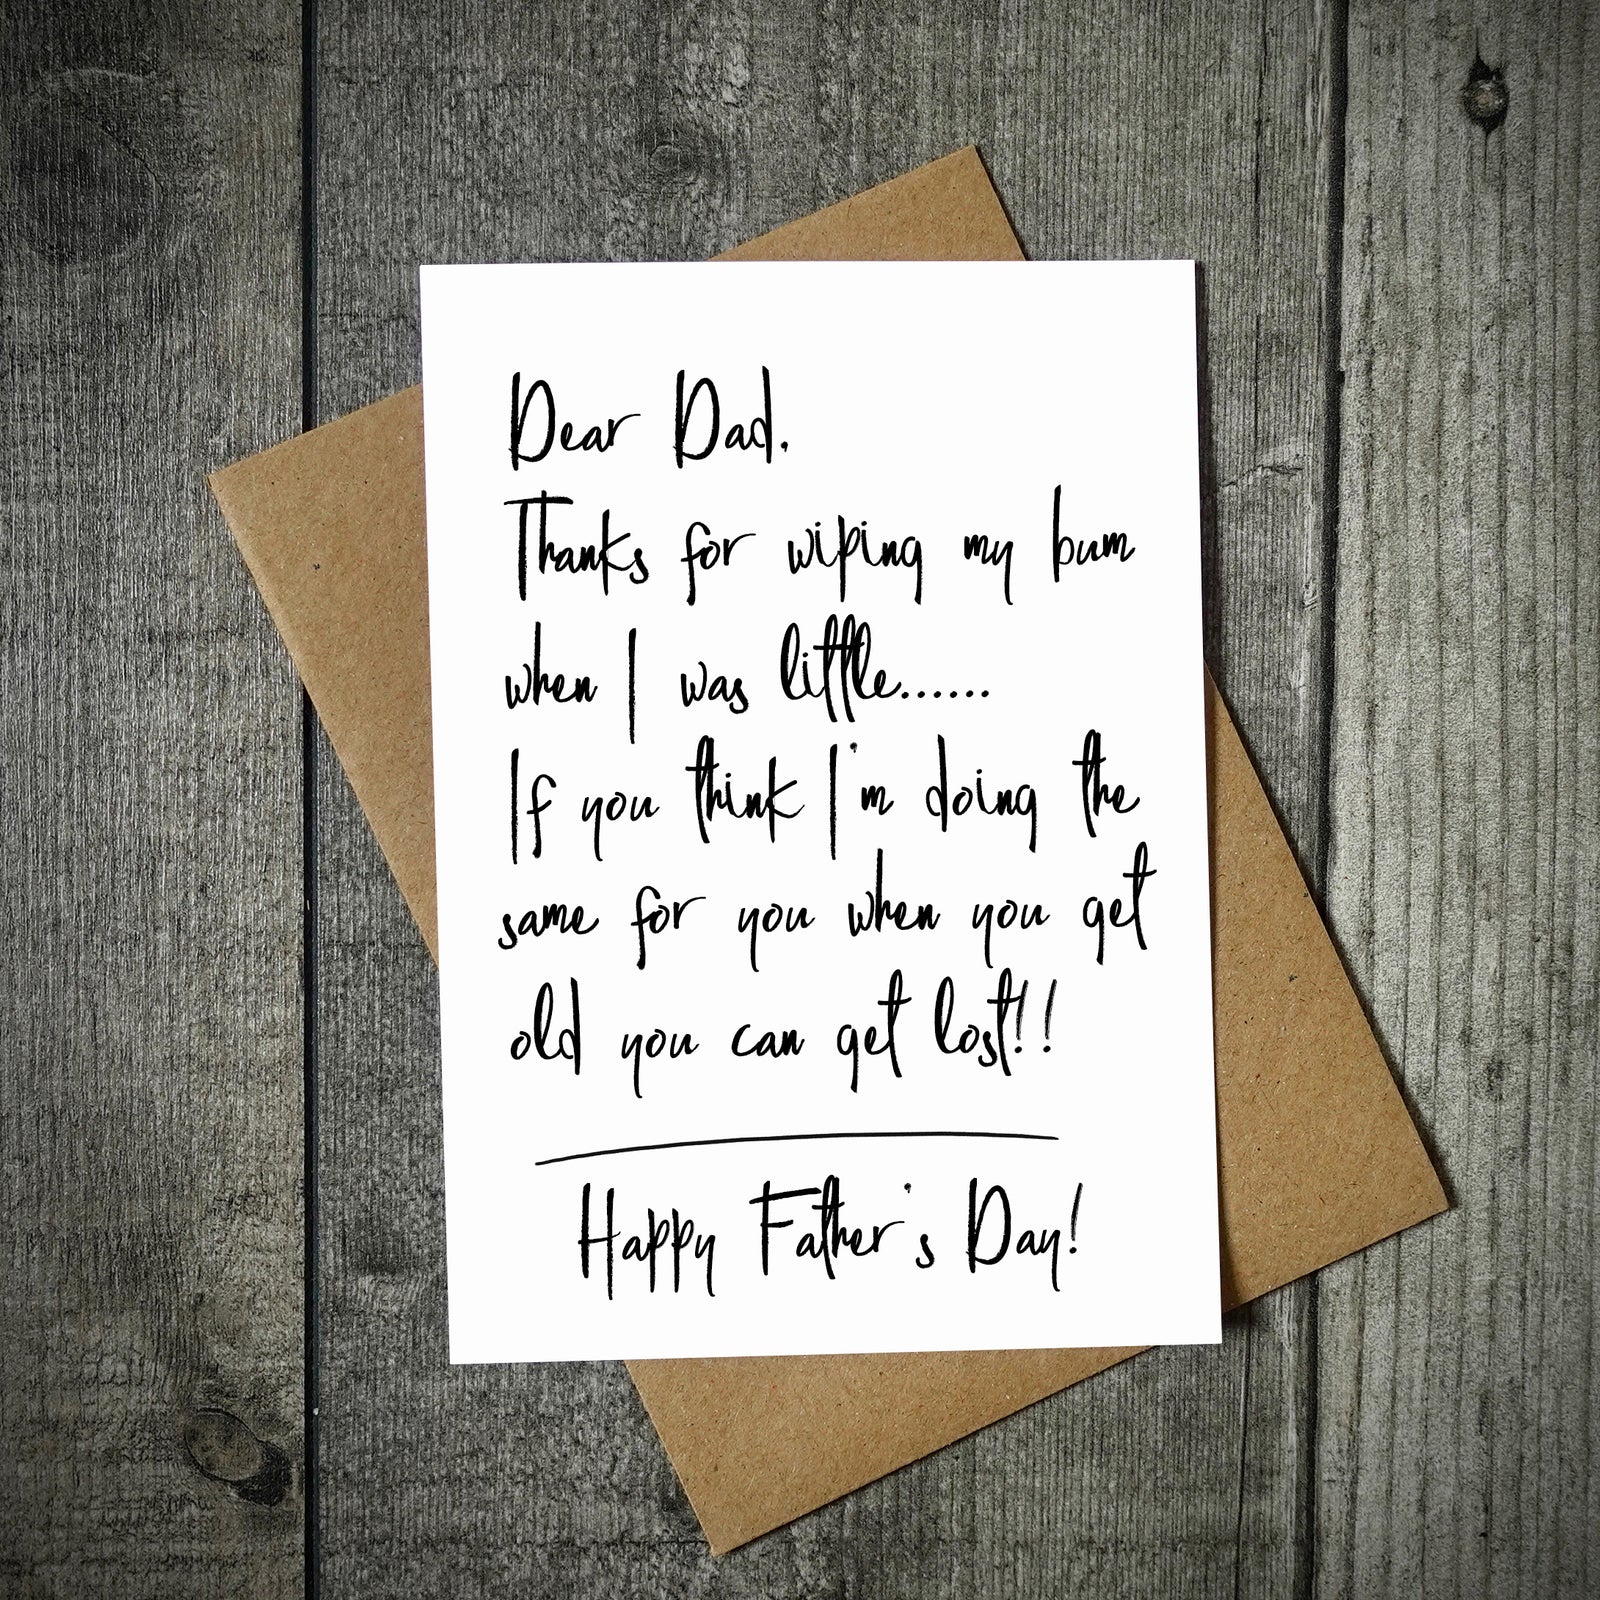 Dear Dad,
Thanks for wiping my bum
when I was little......
If you think I'm doing the
same for you when you get
old you can get lost!!
Happy Father's Day!